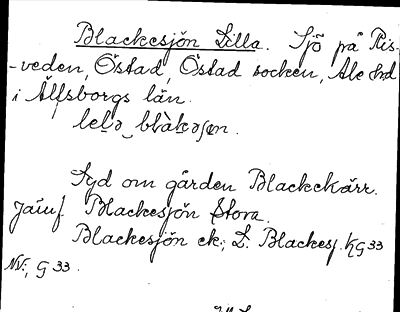 Blackesjön Lilla. Sjö på Ris-
-veden, Östad, Östad socken, Ale hd
i Älfsborgs län.
lelə blàkəʃøn.
Syd om gården Blackekärr.
Jämf Blackesjön Stora.
Blackesjön ek; L. Blackesj. KG33
NV; G 33.